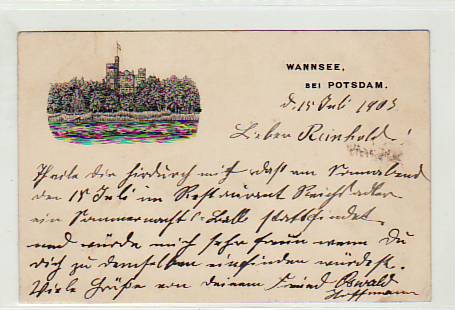 WANNSEE,
BEI POTSDAM.
d. 15 Juli 1903
Lieber Reinhold!
Theile dir hirdurch mit daß am Sonnabend
den 18 Juli im Restaurant Reichsadler
ein Sommernachts-Ball stattfindet
und würde mich sehr freun wenn Du
dich zu demselben einfinden würdest.
Viele Grüße von deinem Freund Oswald
Hoffmann